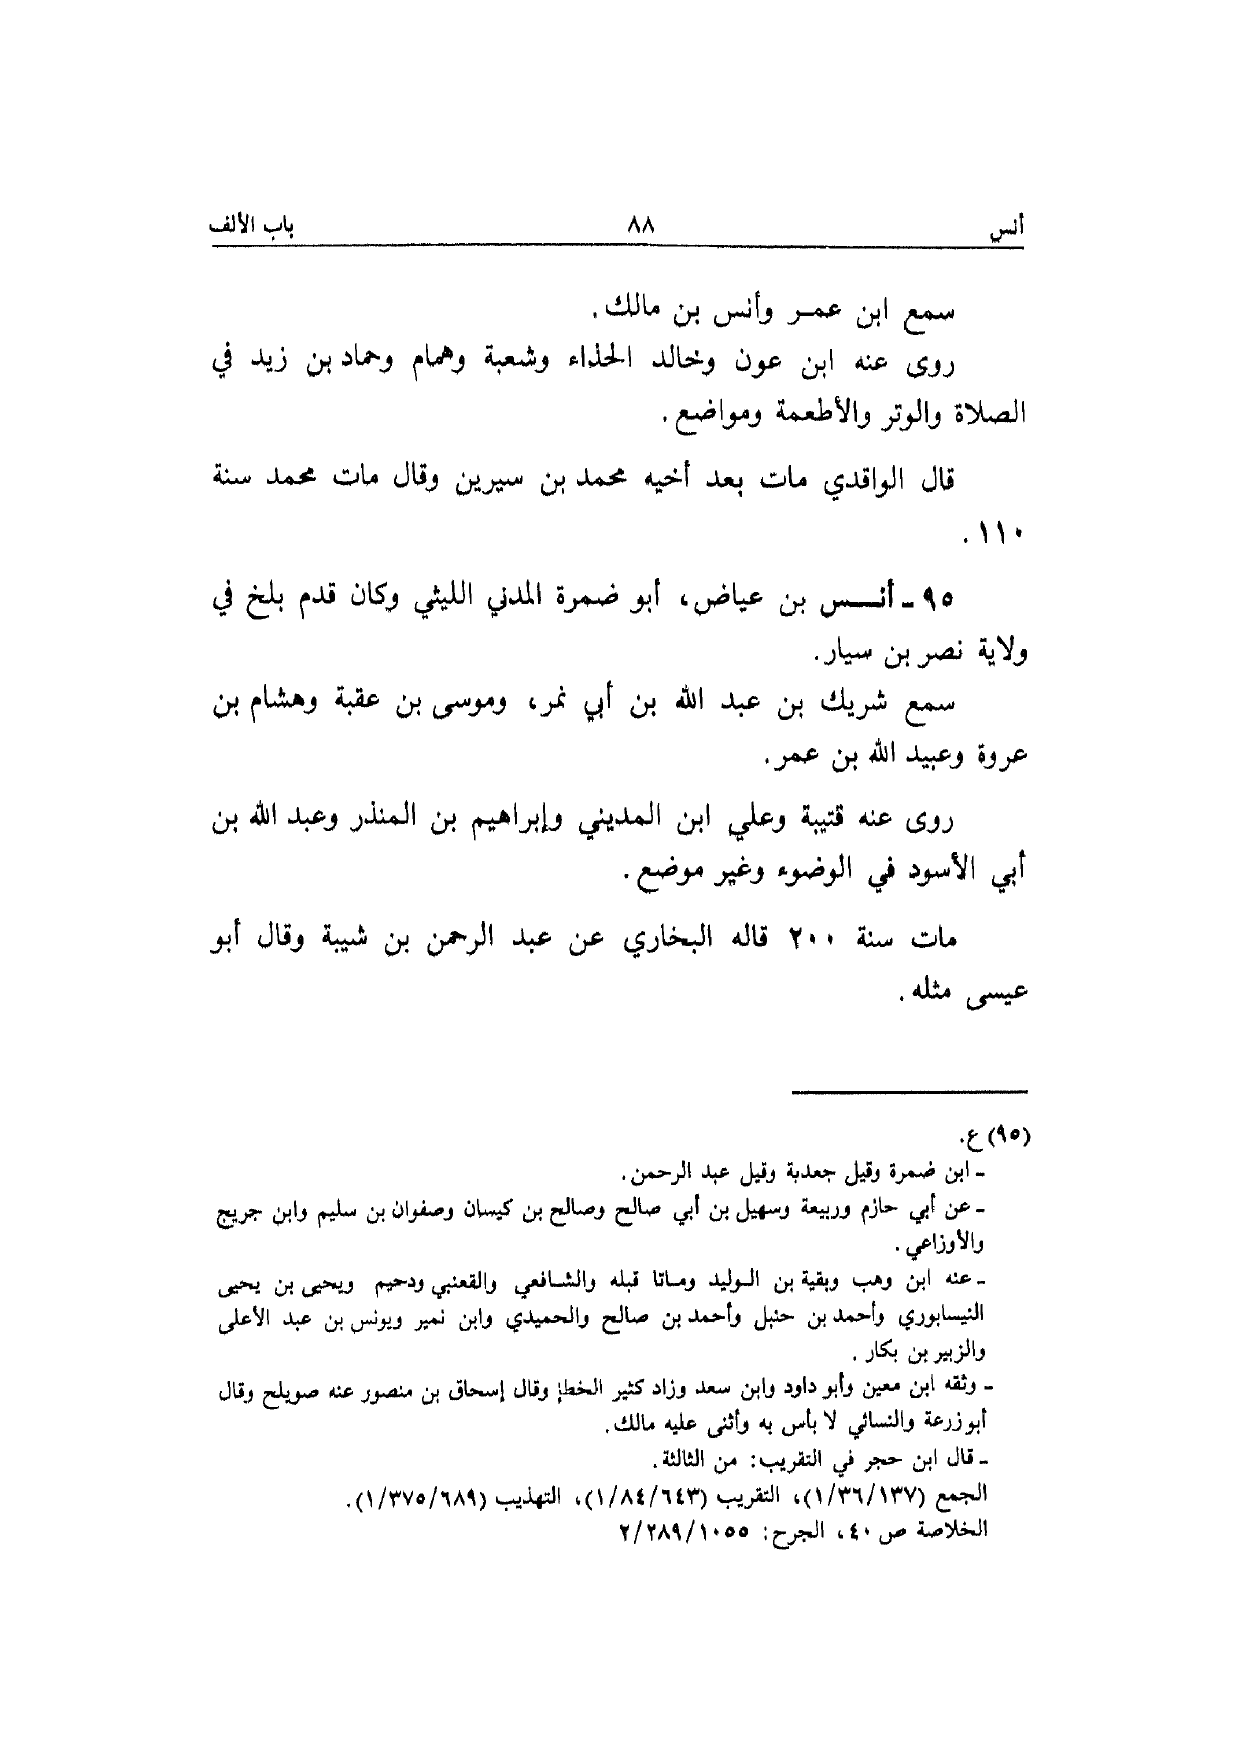 أنس ٨٨ باب الألف
سمع ابن عمر وأنس بن مالك.
روى عنه ابن عون وخالد الحذاء وشعبة وهمام وحماد بن زيد في
الصلاة والوتر والأطعمة ومواضع.
قال الواقدي مات بعد أخيه محمد بن سيرين وقال مات محمد سنة
١١٠.
٩٥ - أنس بن عياض، أبو ضمرة المدني الليثي وكان قدم بلخ في
ولاية نصر بن سيار.
سمع شريك بن عبد الله بن أبي نمر، وموسى بن عقبة وهشام بن
عروة وعبيد الله بن عمر.
روى عنه قتيبة وعلي ابن المديني وإبراهيم بن المنذر وعبد الله بن
أبي الأسود في الوضوء وغير موضع.
مات سنة ٢٠٠ قاله البخاري عن عبد الرحمن بن شيبة وقال أبو
عيسى مثله.
(٩٥) ع.
- ابن ضمرة وقيل جعدبة وقيل عبد الرحمن.
- عن أبي حازم وربيعة وسهيل بن أبي صالح وصالح بن كيسان وصفوان بن سليم وابن جريج
والأوزاعي.
- عنه ابن وهب وبقية بن الوليد وماتا قبله والشافعي والقعنبي ودحيم ويحيى بن يحيى
النيسابوري وأحمد بن حنبل وأحمد بن صالح والحميدي وابن نمير ويونس بن عبد الأعلى
والزبير بن بكار.
- وثقه ابن معين وأبو داود وابن سعد وزاد كثير الخطإ وقال إسحاق بن منصور عنه صويلح وقال
أبو زرعة والنسائي لا بأس به وأثنى عليه مالك.
- قال ابن حجر في التقريب: من الثالثة.
الجمع (١/٣٦/١٣٧)، التقريب (١/٨٤/٦٤٣)، التهذيب (١/٣٧٥/٦٨٩).
الخلاصة ص ٤٠، الجرح: ٢/٢٨٩/١٠٥٥